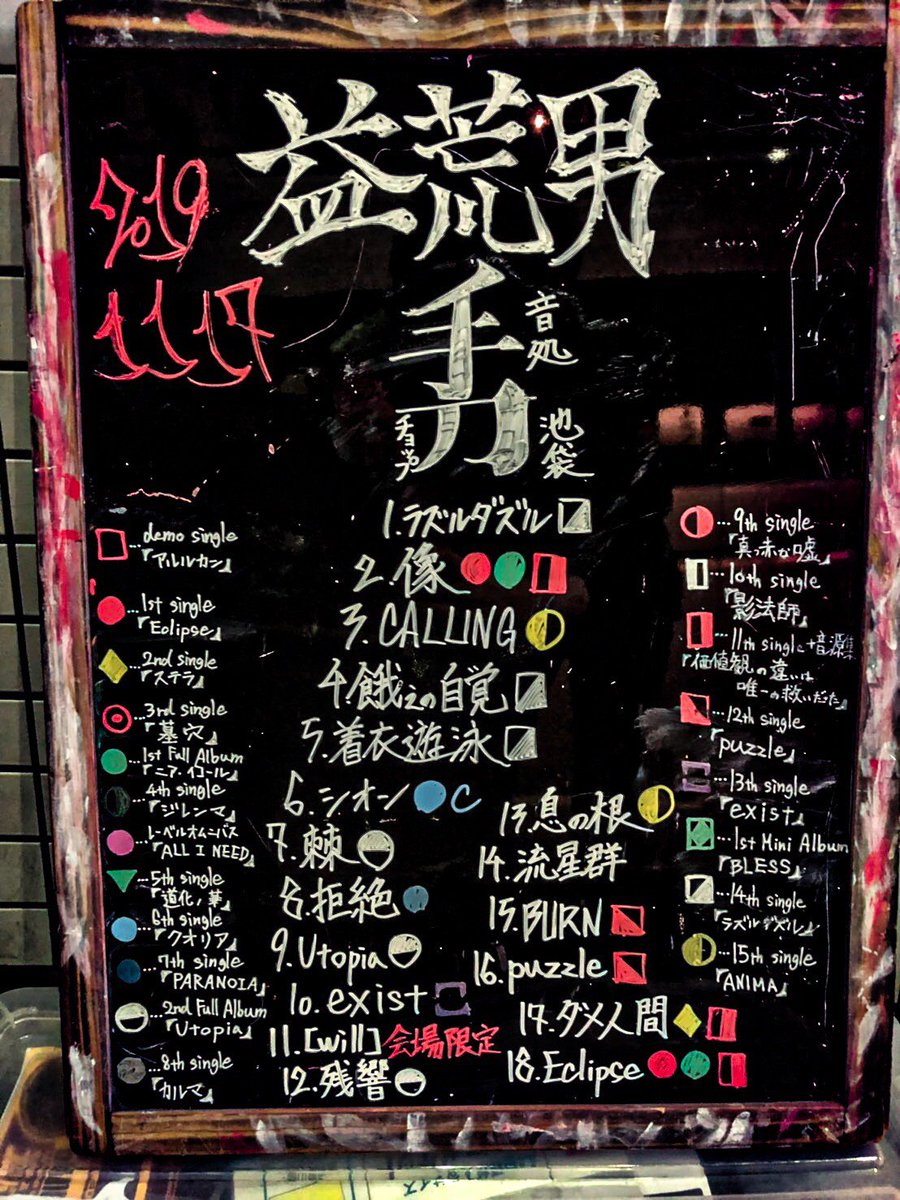 益荒男
2019
11.17
手刀
チョップ
音処
池袋
1.ラズルダズル
2.像
3.CALLING
4.餓えの自覚
5.着衣遊泳
6.シオン C
7.棘
8.拒絶
9.Utopia
10.exist
11.[will]会場限定
12.残響
13.息の根
14.流星群
15.BURN
16.puzzle
17.ダメ人間
18.Eclipse
…demo single
『アルルカン』
…1st single
『Eclipse』
…2nd single
『ステラ』
…3rd single
『墓穴』
…1st Full Album
『ニア・イコール』
…4th single
『ジレンマ』
レーベルオムニバス
『ALL I NEED』
…5th single
『道化ノ華』
6th single
『クオリア』
…7th single
『PARANOIA』
…2nd Full Album
『Utopia』
…8th single
『カルマ』
…9th single
『真っ赤な嘘』
…10th single
『影法師』
…11th single+音源集
『価値観の違いは
唯一の救いだった』
…12th single
『puzzle』
…13th single
『exist』
…1st Mini Album
『BLESS』
…14th single
『ラズルダズル』
…15th single
『ANIMA』